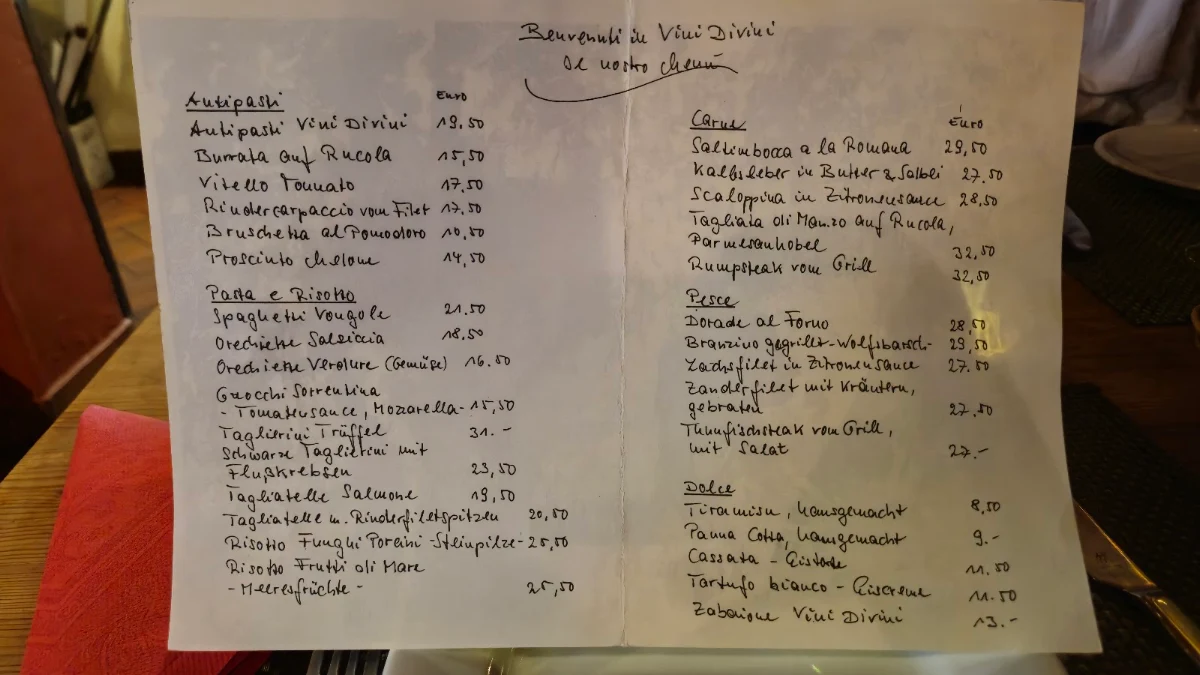 Benvenuti in Vini Divini
nostro
Antipasti Euro
Antipasti Vini Divini 19,50
Burrata auf Rucola 15,50
Vitello Tonnato 17,50
Rindercarpaccio vom Filet 17,50
Bruschetta al Pomodoro 10,50
Prosciuto 14,50
Pasta e Risotto
Spaghetti Vongole 21.50
Orechiette Salsiccia 18,50
Orechiette Verdure (Gemüse) 16.50
Gnocchi Sorrentina
- Tomatensauce, Mozzarella - 15,50
Taglierini Trüffel 31.-
Schwarze Taglierini mit
Flußkrebsen 23,50
Tagliatelle Salmone 19,50
Tagliatelle m. Rinderfiletspitzen 20,50
Risotto Funghi Porcini - Steinpilze - 25,50
Risotto Frutti di Mare
- Meeresfrüchte - 25,50
Carne Euro
Saltimbocca a la Romana 29,50
Kalbsleber in Butter & Salbei 27.50
Scaloppina in Zitronensauce 28,50
Tagliata di Manzo auf Rucola,
Parmesanhobel 32,50
Rumpsteak vom Grill 32,50
Pesce
Dorade al Forno 28,50
Branzino gegrillt - Wolfsbarsch - 29,50
Lachsfilet in Zitronensauce 27.50
Zanderfilet mit Kräutern,
gebraten 27.50
Thunfischsteak vom Grill,
mit Salat 27.-
Dolce
Tiramisu, hausgemacht 8,50
Panna Cotta, hausgemacht 9.-
Cassata - Eistorte 11.50
Tartufo bianco - Eiscreme 11.50
Zabaione Vini Divini 13.-